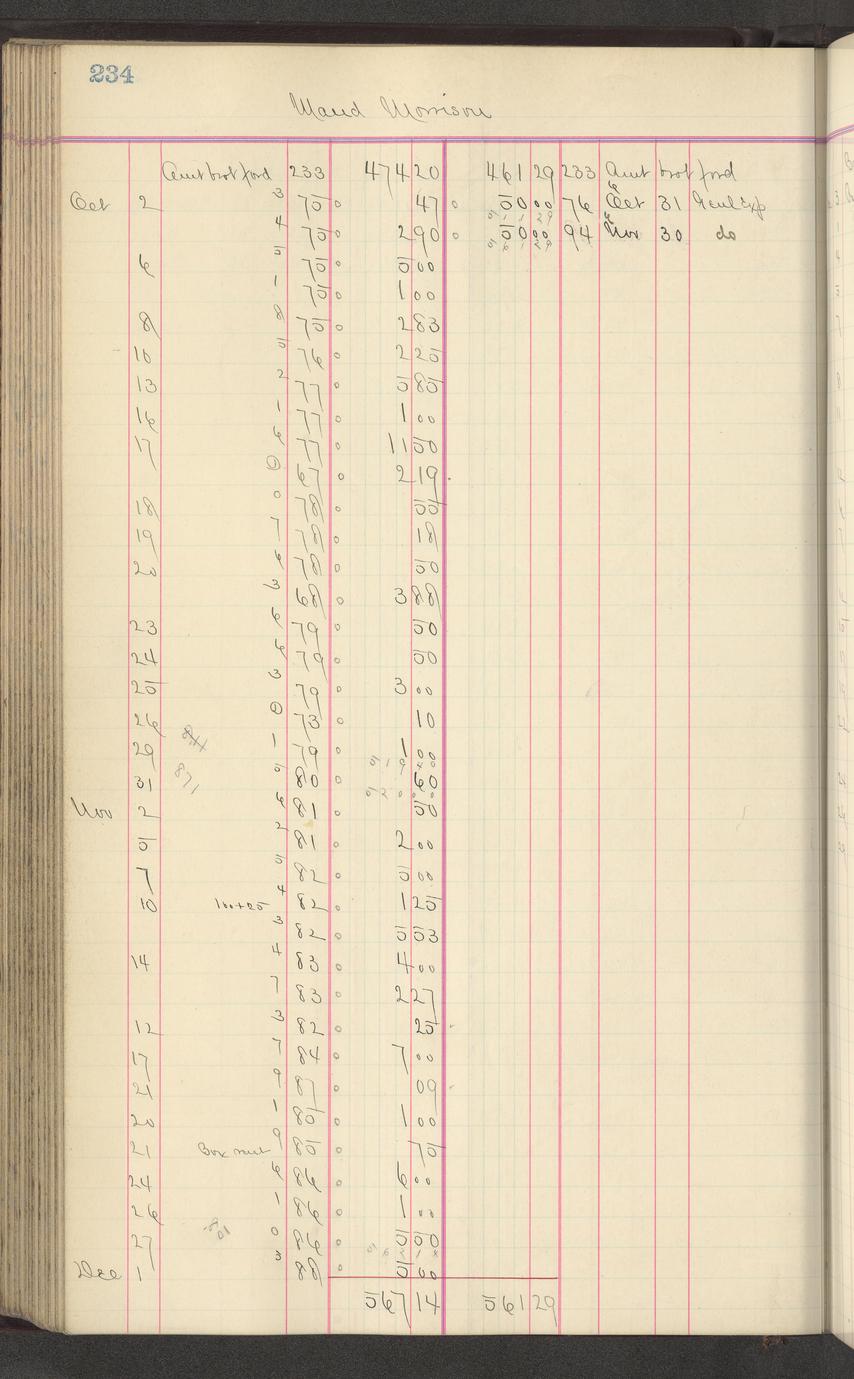 234
Maud Morrison
Amt brot ford 233 474 20 461 29 233 Amt brot ford
Oct 2 3 75 47 50 00 76 Oct 31 Genl Exp
511 29
4 75 2 90 50 00 94 Nov 30 do
561 29
6 5 75 5 00
1 75 1 00
8 8 75 2 83
10 5 76 2 25
13 2 77 5 85
16 1 77 1 00
17 6 77 11 50
0 67 2 19
18 0 78 55
19 7 78 18
20 6 78 50
3 68 3 88
23 6 79 50
24 6 79 50
25 3 79 3 00
26 0 73 10
844
29 1 79 1 00
519 40
871
31 5 80 60
520 00
Nov 2 6 81 50
5 2 81 2 00
7 5 82 5 00
10 100+25 4 82 1 25
3 82 5 53
14 4 83 4 00
7 83 2 27
12 3 82 25
17 7 84 7 00
21 9 87 09
20 1 85 1 00
21 Box nut 9 85 75
24 6 86 6 00
26 1 86 1 00
27 0 86 5 50
Dec 1 3 88 5 00
567 14 561 29